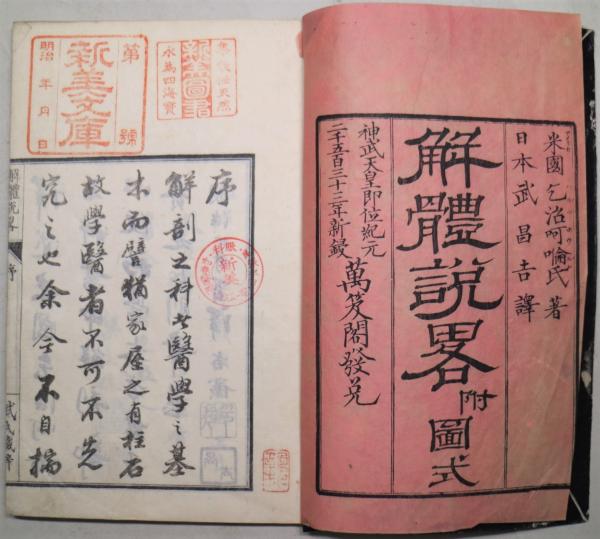 米國 乞治呵喻氏 著
日本 武昌吉 譯
解體說畧
附圖式
神武天皇即位紀元
二千五百三十三年新鋟 萬笈閣發兌
第 號
新美文庫
明治 年 月 日
永為四海寶
序
解剖之科者醫學之基
本而譬猶家屋之有柱石
故學醫者不可不先
究之也余今不自揣
解體說畧
序
武氏藏梓
眼科
新美